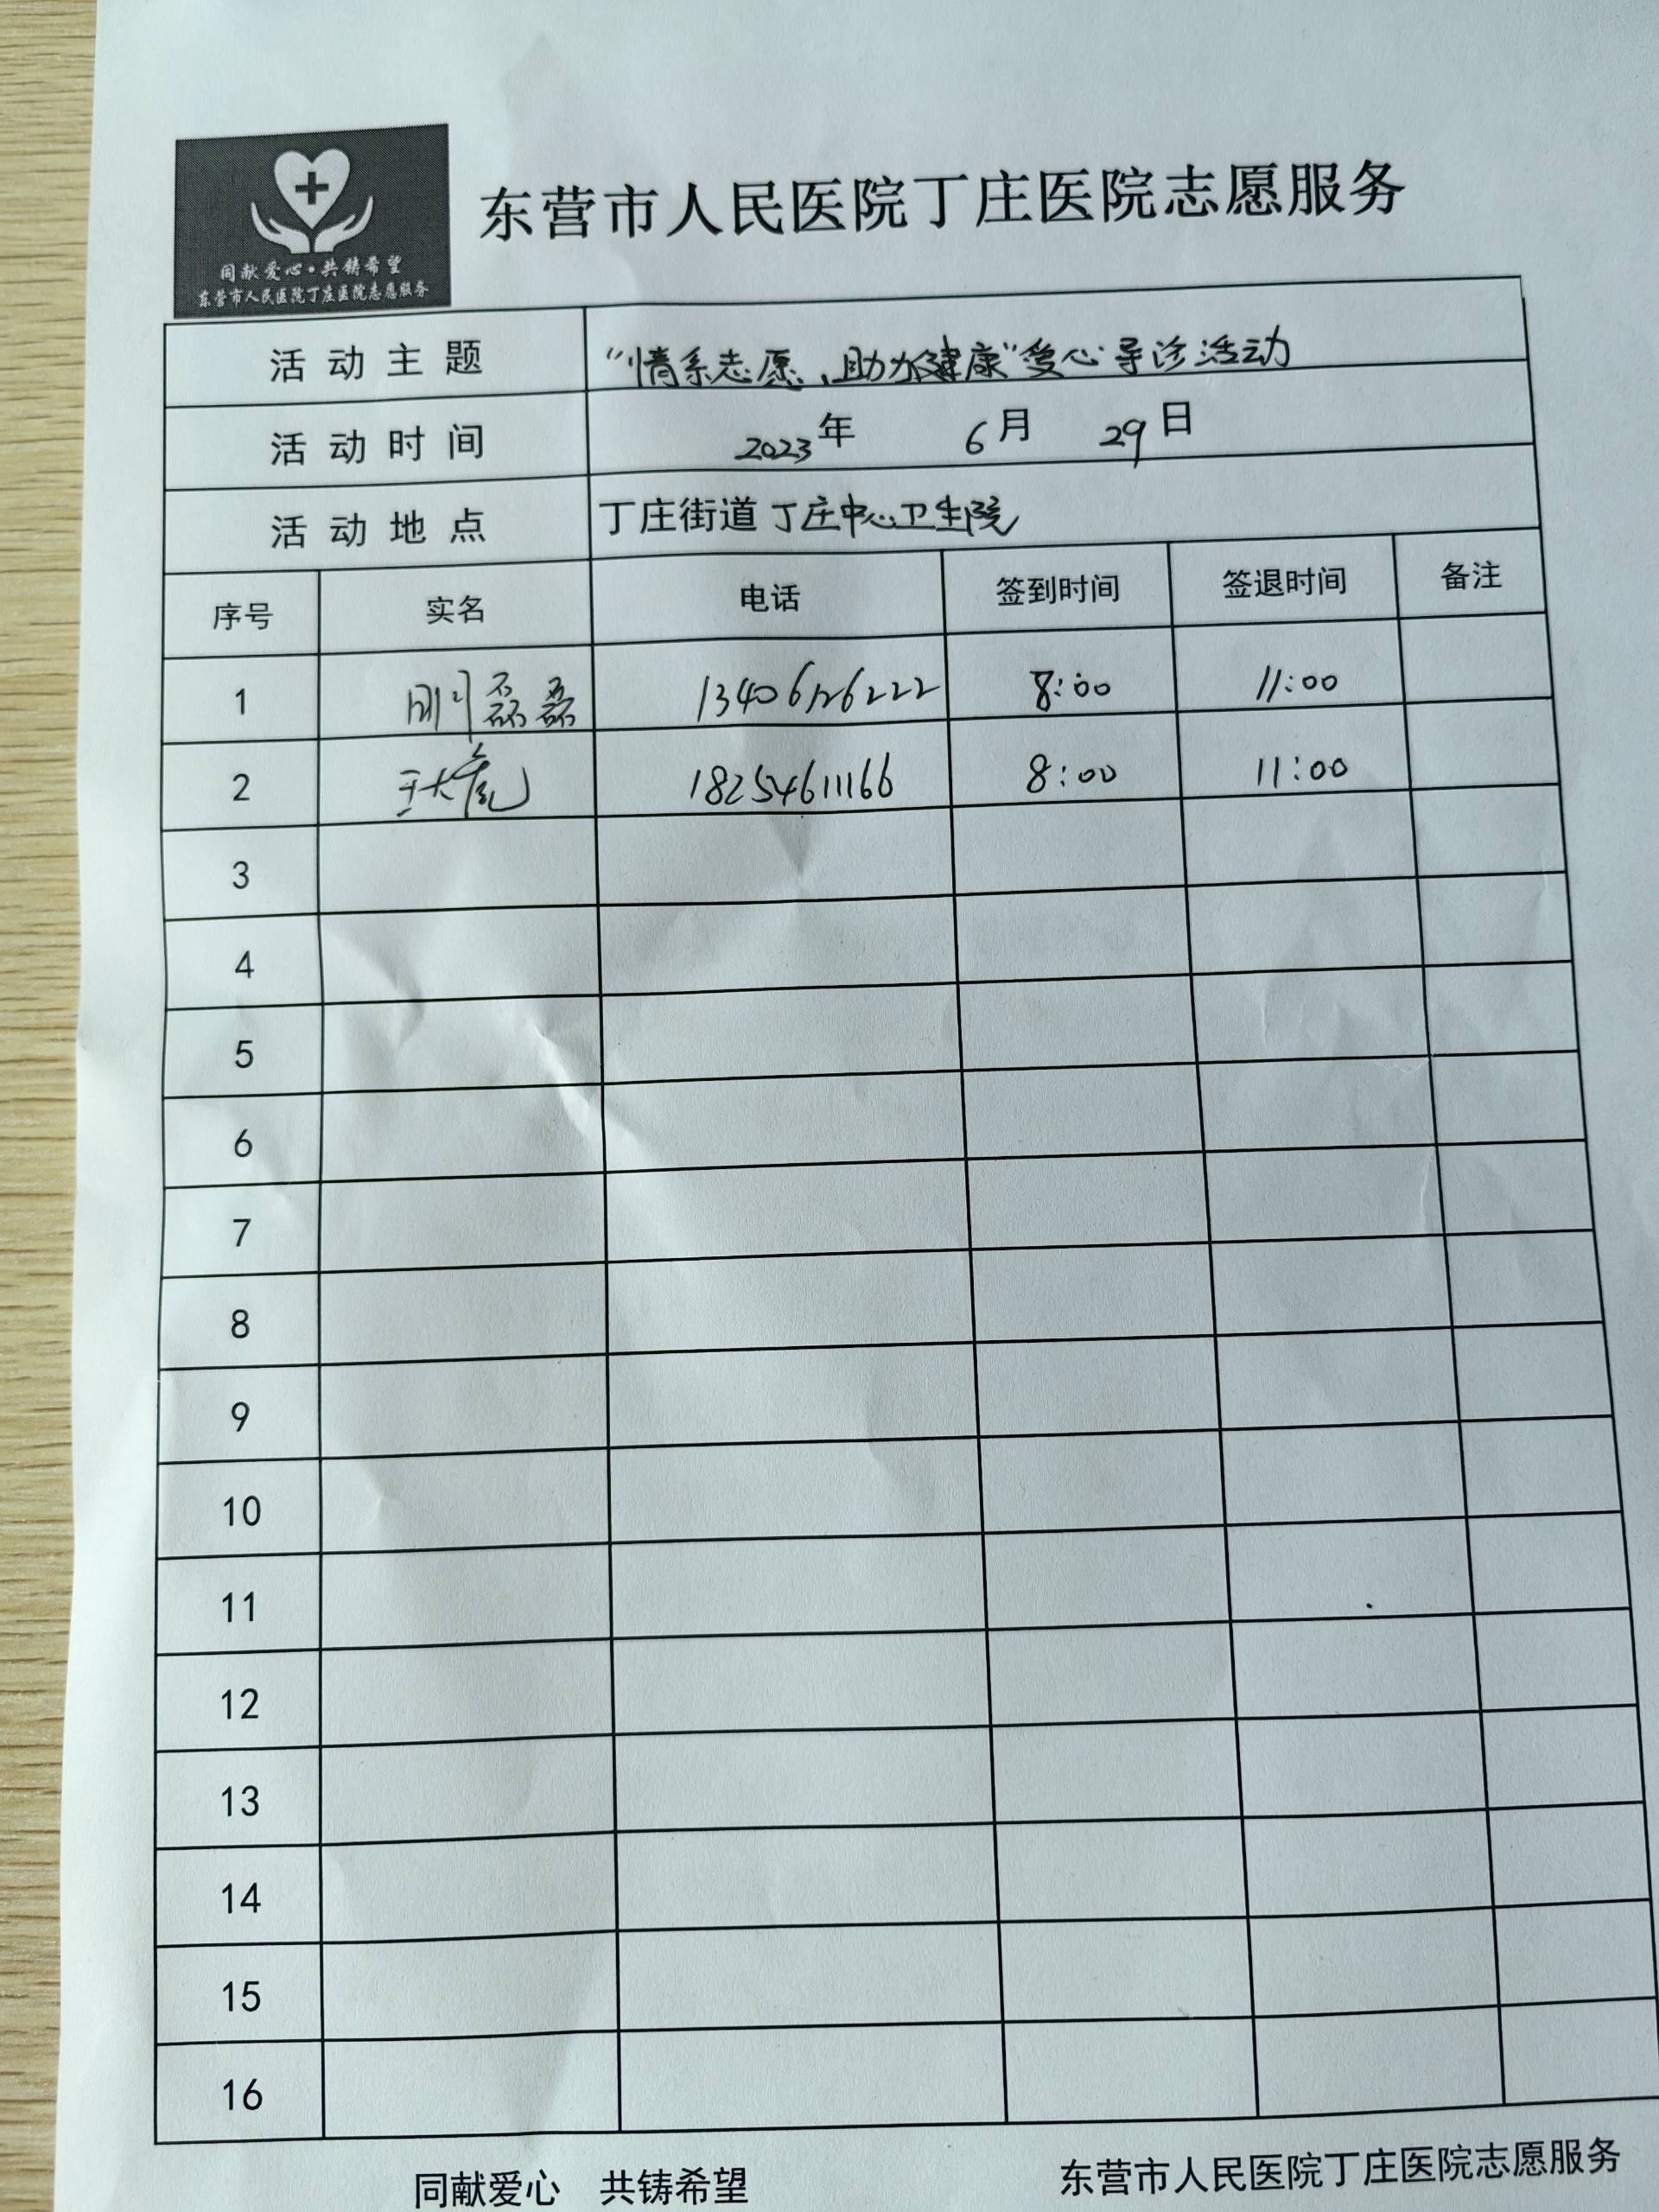 同献爱心·共铸希望
东营市人民医院丁庄医院志愿服务
东营市人民医院丁庄医院志愿服务
活动主题 “情系志愿,助力健康”爱心导诊活动
活动时间 2023年 6月 29日
活动地点 丁庄街道丁庄中心卫生院
序号 实名 电话 签到时间 签退时间 备注
1 磊磊 13406126222 8:00 11:00
2 王大彪 18254611166 8:00 11:00
3
4
5
6
7
8
9
10
11
12
13
14
15
16
同献爱心 共铸希望 东营市人民医院丁庄医院志愿服务